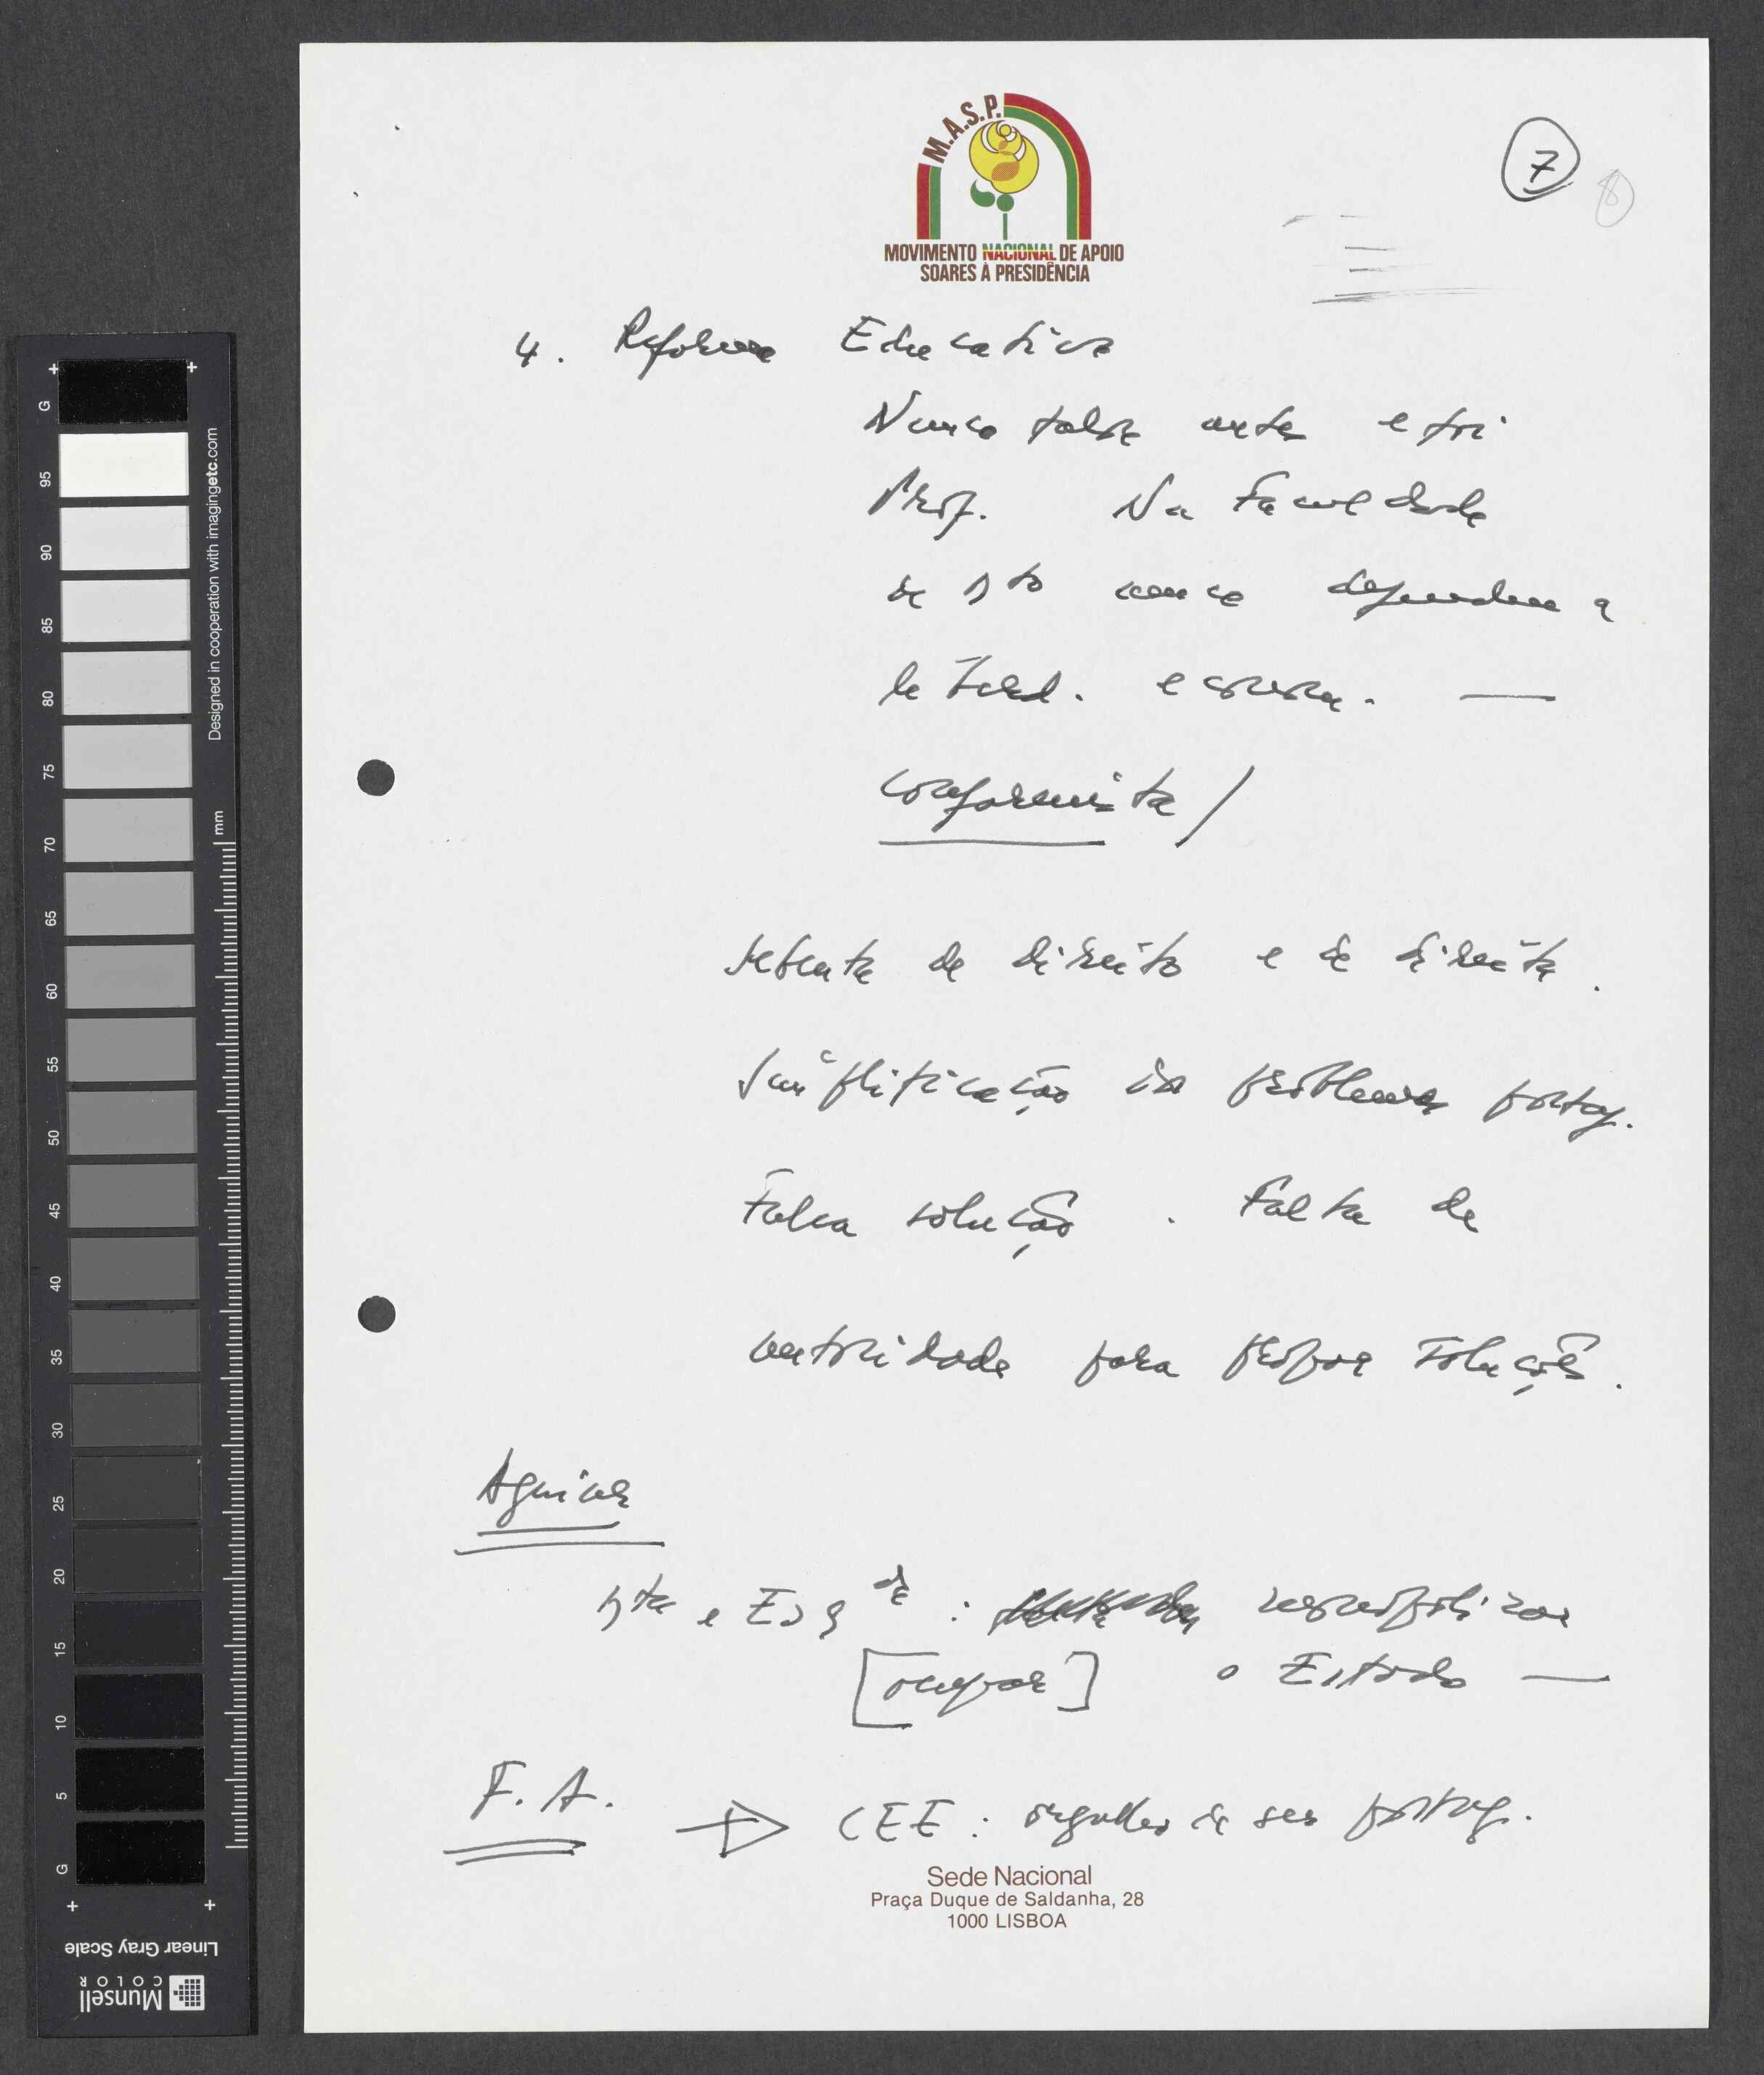 M.A.S.P.
MOVIMENTO NACIONAL DE APOIO
SOARES À PRESIDÊNCIA
7
8
4. Reforma Educativa
Nunca falou antes e foi
Prof. Na Faculdade
de Dto nunca defendeu a
liberd. e
conformista/
sebenta de direito e de direita.
Simplificação dos problemas portug.
Falsa solução. Falta de
autoridade para propor soluções.
Aguiar
Dta e Esqda : responsabilizar
[ocupar] o Estado —
F.A. → CEE : orgulho de ser portug.
Sede Nacional
Praça Duque de Saldanha, 28
1000 LISBOA
Designed in cooperation with imagingetc.com
mm
G
95
90
85
80
75
70
65
60
55
50
45
40
35
30
25
20
15
10
5
G
Linear Gray Scale
Munsell
COLOR